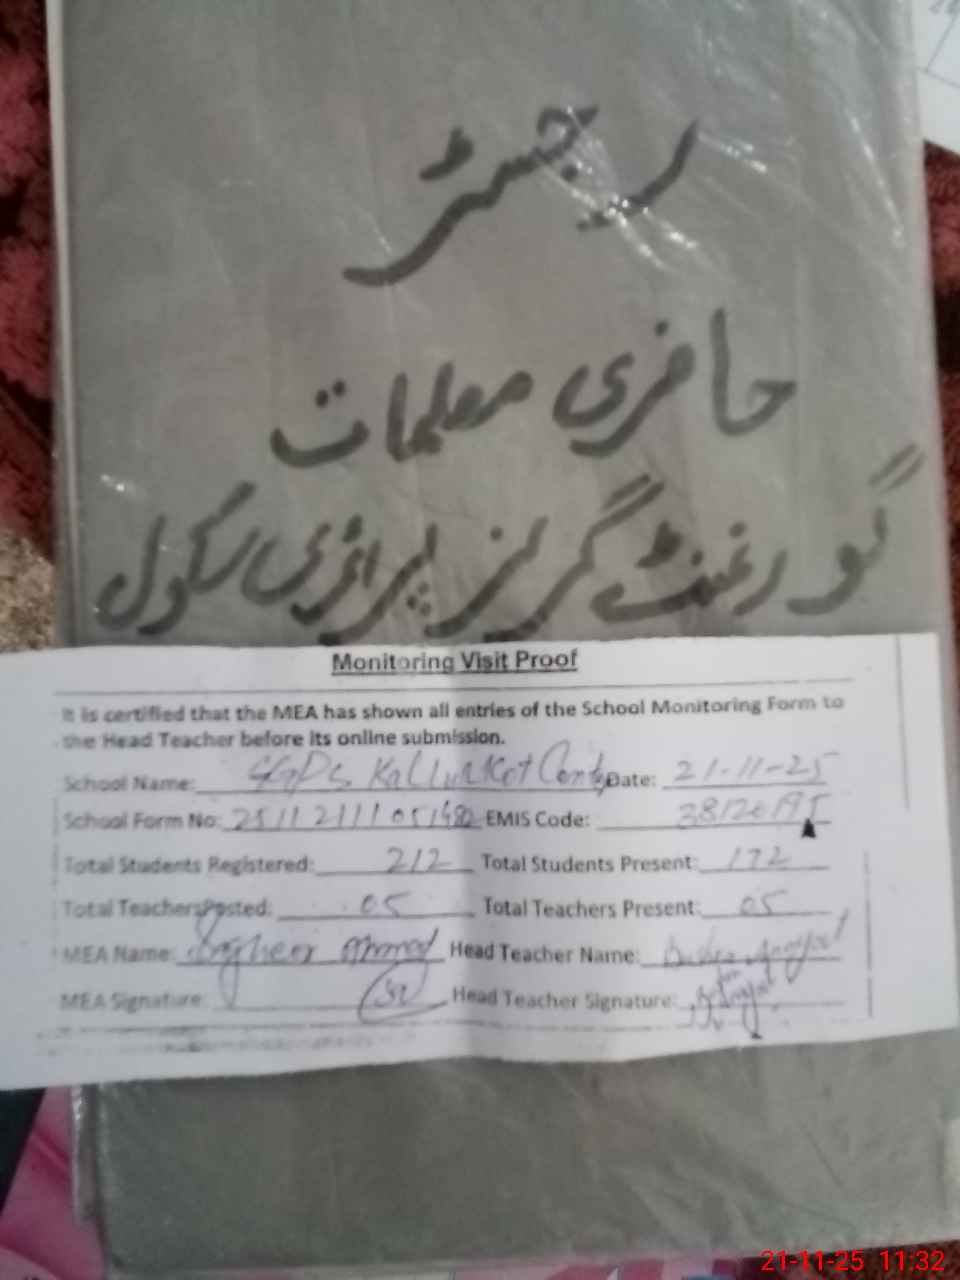 رجسٹر
حاضری معلمات
گورنمنٹ گرلز پرائمری سکول
Monitoring Visit Proof
It is certified that the MEA has shown all entries of the School Monitoring Form to
the Head Teacher before its online submission.
School Name: GGPS Kallurkot Date: 21-11-25
School Form No: EMIS Code: 38120195
Total Students Registered: 212 Total Students Present: 172
Total Teachers Posted: 05 Total Teachers Present: 05
MEA Name: Ahmad Head Teacher Name:
MEA Signature: Head Teacher Signature:
21-11-25 11:32